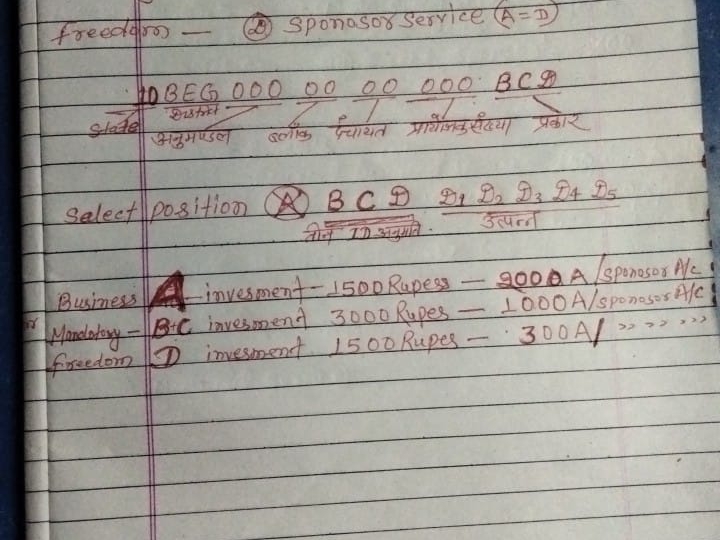 freedom — Ⓓ Sponosor Service (A=D)
10 BEG 000 00 00 000 BCD
District
State अनुमण्डल ब्लॉक पंचायत प्रायोजक संख्या प्रकार
Select position Ⓐ B C D D1 D2 D3 D4 D5
तीन ID अनुमति उत्पन्न
Business A invesment - 1500 Rupess — 2000 A/Sponosor A/C
Mandatory - B+C invesment 3000 Rupes — 1000 A/Sponosor A/C
freedom D invesment 1500 Rupes — 300 A/ >> >> >>>